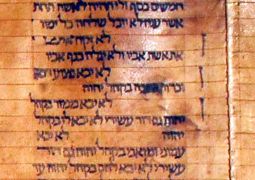 חמשים כסף ולו תהיה לאשה תחת
אשר ענה לא יוכל שלחה כל ימיו
לא יקח איש
את אשת אביו ולא יגלה כנף אביו
לא יבא
וכרות שפכה בקהל יהוה
לא יבא ממזר בקהל
יהוה גם דור עשירי לא יבא לו בקהל
יהוה לא יבא
עמוני ומואבי בקהל יהוה גם דור
עשירי לא יבא להם בקהל יהוה עד